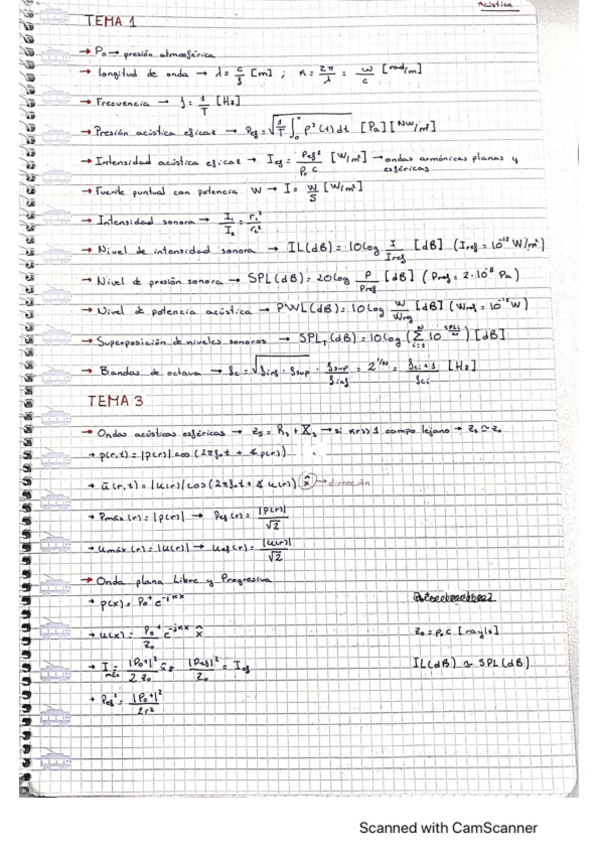 Acústica
TEMA 1
→ P₀ → presión atmosférica
→ longitud de onda → λ = c/f [m] ; κ = 2π/λ = w/c [rad/m]
→ Frecuencia → f = 1/T [Hz]
→ Presión acústica eficaz → Pef = √(1/T ∫₀ᵀ p²(t)dt) [Pa] [Nw/m²]
→ Intensidad acústica eficaz → Ief = Pef²/P₀ c [W/m²] → ondas armónicas planas y
esféricas
→ Fuente puntual con potencia W → I = W/S [W/m²]
→ Intensidad sonora → I₁/I₂ = r₂²/r₁²
→ Nivel de intensidad sonora → IL(dB) = 10log I/Iref [dB] (Iref = 10⁻¹² W/m²)
→ Nivel de presión sonora → SPL(dB) = 20log P/Pref [dB] (Pref = 2·10⁻⁵ Pa)
→ Nivel de potencia acústica → PWL(dB) = 10log W/Wref [dB] (Wref = 10⁻¹²W)
→ Superposición de niveles sonoros → SPL_T(dB) = 10log (Σ 10^(SPLi/10)) [dB]
→ Bandas de octava → fc = √(finf · fsup) · fsup/finf = 2^(1/N) = fci+1/fci [Hz]
TEMA 3
→ Ondas acústicas esféricas → Zs = Rs + Xs → si κr>>1 campo lejano → Zs ≃ Z₀
→ p(r,t) = |p(r)| cos (2πf₀t + ∢p(r))
→ ū(r,t) = |u(r)| cos (2πf₀t + ∢u(r)) x̂ → dirección
→ Pmáx(r) = |p(r)| → Pef(r) = |p(r)|/√2
→ umáx(r) = |u(r)| → uef(r) = |u(r)|/√2
→ Onda plana Libre y Progresiva
→ p(x) = P₀⁺ e^(-jκx)
→ u(x) = P₀⁺/Z₀ e^(-jκx) x̂ Z₀ = P₀C [rayls]
→ I = |P₀⁺|²/2 Z₀ x̂ |Pef|²/Z₀ = Ief IL(dB) ≃ SPL(dB)
→ Pef² = |P₀⁺|²/2r²
Scanned with CamScanner